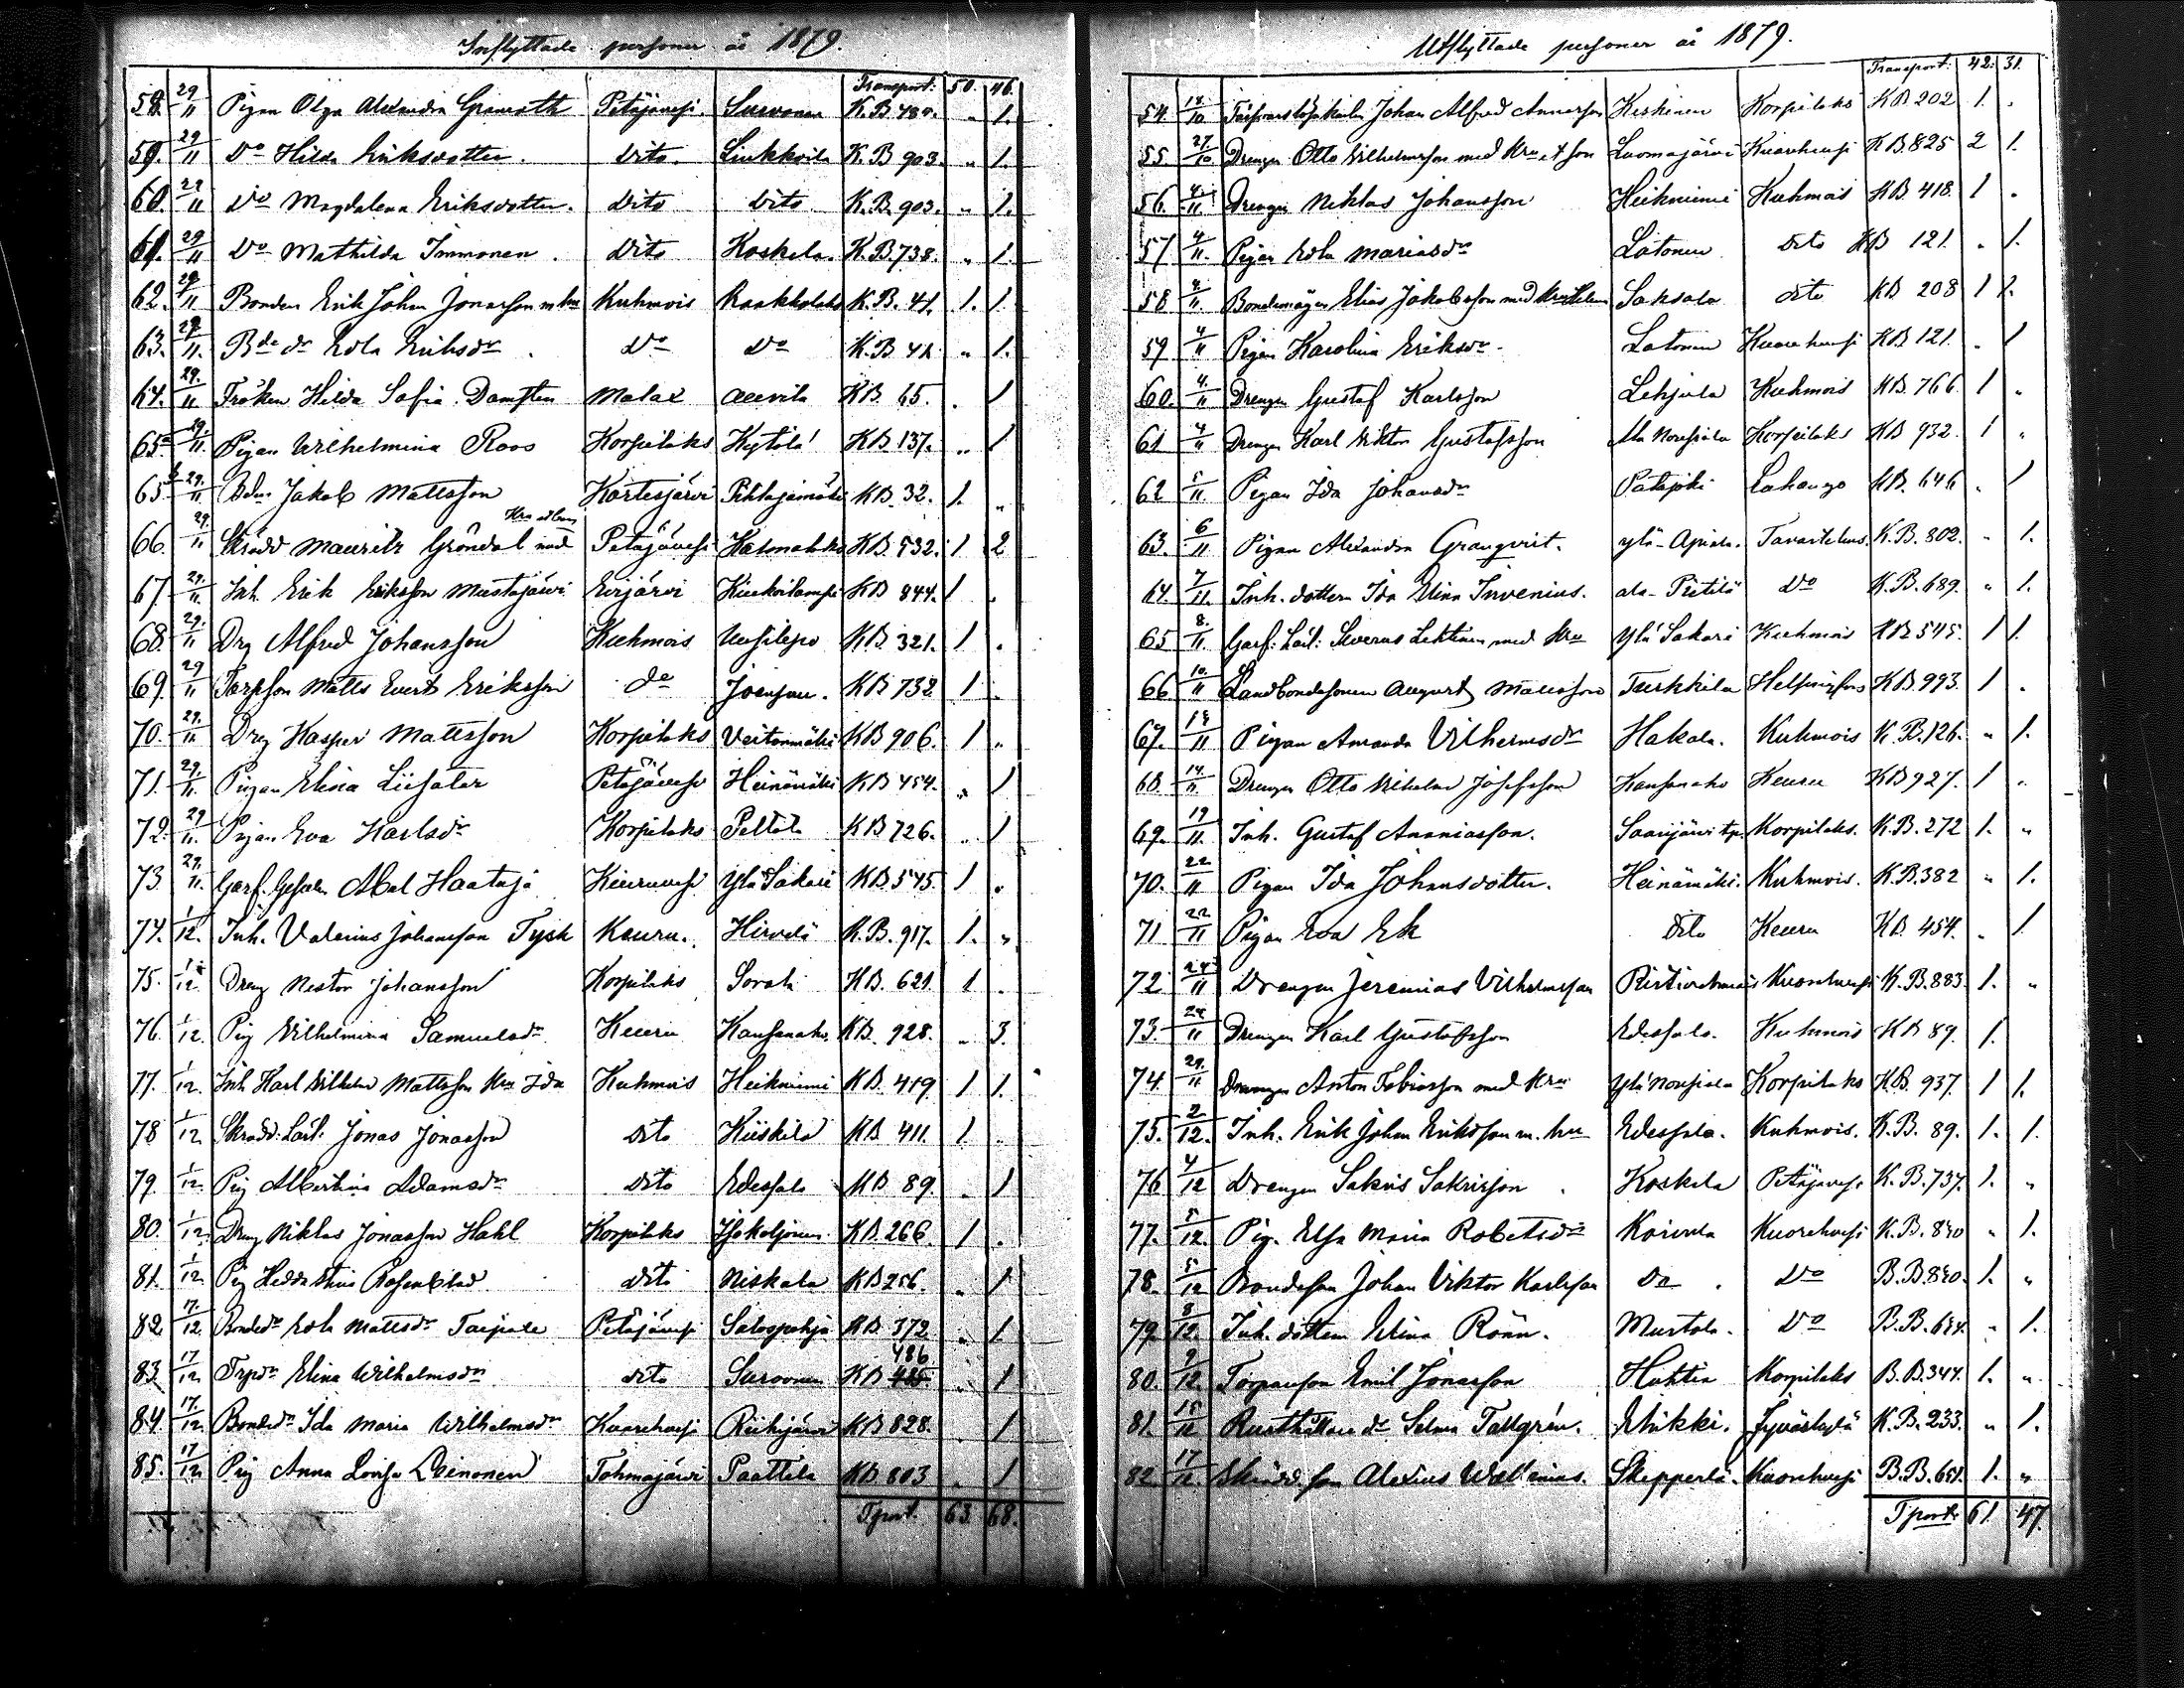 Inflyttade personer år 1879.
Transport: 50. 46.
58. 29/11 Pigan Olga Alexandra Granroth Petäjävesi. Survonen K.B. 480. „ 1.
59. 29/11 Do Hilda Eriksdotter. Dito. Liukkoila K.B. 903. „ 1.
60. 29/11 Do Magdalena Eriksdotter. Dito Dito K.B. 903. „ 1.
61. 29/11 Do Mathilda Immonen. Dito Koskela. K.B. 738. „ 1.
62. 29/11 Bonden Erik Johan Jonasson m hu Kuhmois K.B. 41. 1. 1.
63. 29/11. Bde dr Edla Eriksdr. Do Do K.B. 41. „ 1.
64. 29./11 Fröken Hilda Sofia Damsten Malax Alevila KB. 65. . 1
65a 29./11. Pigan Wilhelmina Roos Korpilaks Kytölä KB. 137. „ 1
65b 29./11 Jakob Mattsson Pihlajamäki KB. 32. 1. „
66. 29./11 Skrädd Mauritz Gröndal med Petäjävesi KB. 532. 1 2
67. 29./11. Inh. Erik Eriksson Mustajärvi Evijärvi KB 844. 1 .
68. 29./11 Drg Alfred Johansson Kuhmois Uusilepo KB 321. 1 .
69. 29/11 Torpson Matts Evert Eriksson do Joensuu. KB 732 1 .
70. 29./11 Drg Kasper Mattsson Korpilaks Veitonmäki KB 906. 1 „
71. 29./11. Pigan Elina Liisatar Petäjävesi Heinämäki KB 454. „ 1
72. 29/11. Pigan Eva Karlsdr Korpilaks Peltola KB 726. „ 1
73 29./11. Garf. Gesäln Abel Haataja Kiuruvesi Ylä Sakari KB. 545. 1 „
74. 1/12. Inh. Valerius Johansson Tysk Keuru. Hirvelä K.B. 917. 1. „
75. 1/12 Dreng Nestor Johansson Korpilaks KB. 621. 1 .
76. 1/12. Pig Vilhelmina Samuelsdr Keuru Kansanaho. KB. 928. „ 3.
77. 1/12 Inh. Karl Wilhelm Mattsson Hu Ida Kuhmois Heikniemi KB. 419 1 1.
78 1/12. Skrädd: Lärl. Jonas Jonasson Dito Kiiskilä KB 411. 1 ..
79. 1/12. Pig Albertina Adamsdr Dito Edessalo KB 89. . 1
80. 1/12. Dreng Niklas Jonasson Hahl Korpilaks KB. 266. 1 .
81. 1/12 Pig Rosenblad dito Niskala KB 256. „ 1
82 17./12. Bondedr Edla Mattsdr Taipale Petäjävesi Salospohja KB. 372 „ 1
83 17/12 Trpdr Elina Wilhelmsdr dito Survonen KB 486 „ 1
84. 17./12. Bondedr Ida Maria Wilhelmsdr Kuorehvesi Riihijärvi KB 828. . 1
85. 17/12. Pig Anna Lovisa Leinonen Tohmajärvi Paattila KB 803 . 1
Tport. 63. 68.
Utflyttade personer år 1879.
Transport: 42. 31.
54. 18./10 Johan Alfred Annasson Keskinen Korpilaks KB 202 1. .
55. 27./10. Drengen Otto Wilhelmsson med Hru et son Luomajärvi Kuorehvesi KB. 825 2 1.
56. 4./11. Drengen Niklas Johansson Heikniemi Kuhmois KB. 418. 1 .
57. 4/11. Pigan Edla Mariasdr Lätonen Dito KB 121. . 1.
58 4/11. Elias Jakobsson med Saksala dito KB 208 1 1.
59. 4/11 Pigan Karolina Eriksdr. Latonen Kuorehvesi KB 121. . 1
60. 4./11 Drengen Gustaf Karlsson Lehjula Kuhmois KB. 766. 1 „
61 4/11 Drengen Karl Viktor Gustafsson Ala Nousiala Korpilaks KB 932. 1 „
62. 5/11. Pigan Ida Johansdr Patajoki KB. 646. . 1
63. 6/11 Pigan Alexandra Granqvist. Ylä-Apiala. Tavastehus. K.B. 802. „ 1.
64. 7/11. Inh. dottern Ida Elina Invenius. Ala-Pietilä Do K.B. 689. „ 1.
65 8./11. Garf: Lärl: Severus Lehtinen med Hru Ylä Sakari Kuhmois KB 545. 1 1.
66. 10./11 Landbondesonen August Mattsson Turkkila Helsingfors KB. 993. 1 .
67. 18/11 Pigan Amanda Vilhelmsdr Hakala. Kuhmois K.B. 126. „ 1.
68. 14./11. Drengen Otto Vilhelm Josefsson Kansanaho Keuru KB 927. 1 .
69. 19/11. Inh. Gustaf Ananiasson. Saarijärvi tp. Korpilaks. K.B. 272 1. „
70. 22/11 Pigan Ida Johansdotter. Heinämäki. Kuhmois. K.B. 382 „ 1.
71 22/11 Pigan Eva Ek Dito Keuru KB. 454. „ 1
72. 24/11 Drengen Jeremias Vilhelmsson Kuorehvesi K.B. 883. 1. „
73. 24/11 Drengen Karl Gustafsson Edessalo. Kuhmois KB 89. 1.
74. 29./11 Drengen Anton Tobiasson med Hru Ylä Nousiala Korpilaks KB. 937. 1 1.
75. 2/12. Inh. Erik Johan Eriksson m. hu Edessalo. Kuhmois. K.B. 89. 1. 1.
76 4/12 Drengen Sakris Sakrisson Koskela Petäjävesi K.B. 737. 1. „
77. 5/12. Pig. Elsa Maria Robertsdr Koivula Kuorehvesi K.B. 840 „ 1.
78. 5/12 Bondeson Johan Viktor Karlsson Do. Do B.B. 840. 1. „
79. 8/12. Inh. dottern Elina Rönn. Murtola. Do B.B. 654. „ 1.
80. 9/12. Torparson Emil Jonasson Huhtia Korpilaks B.B. 347. 1. „
81. 15/12 Rusthållare dr Selma Tallgrén. Jyväskylä K.B. 233. „ 1.
82. 17/12. Skrädd. son Alexius Wallenius. Skipperlä. Kuorehvesi B.B. 651. 1. „
Tport. 61. 47.